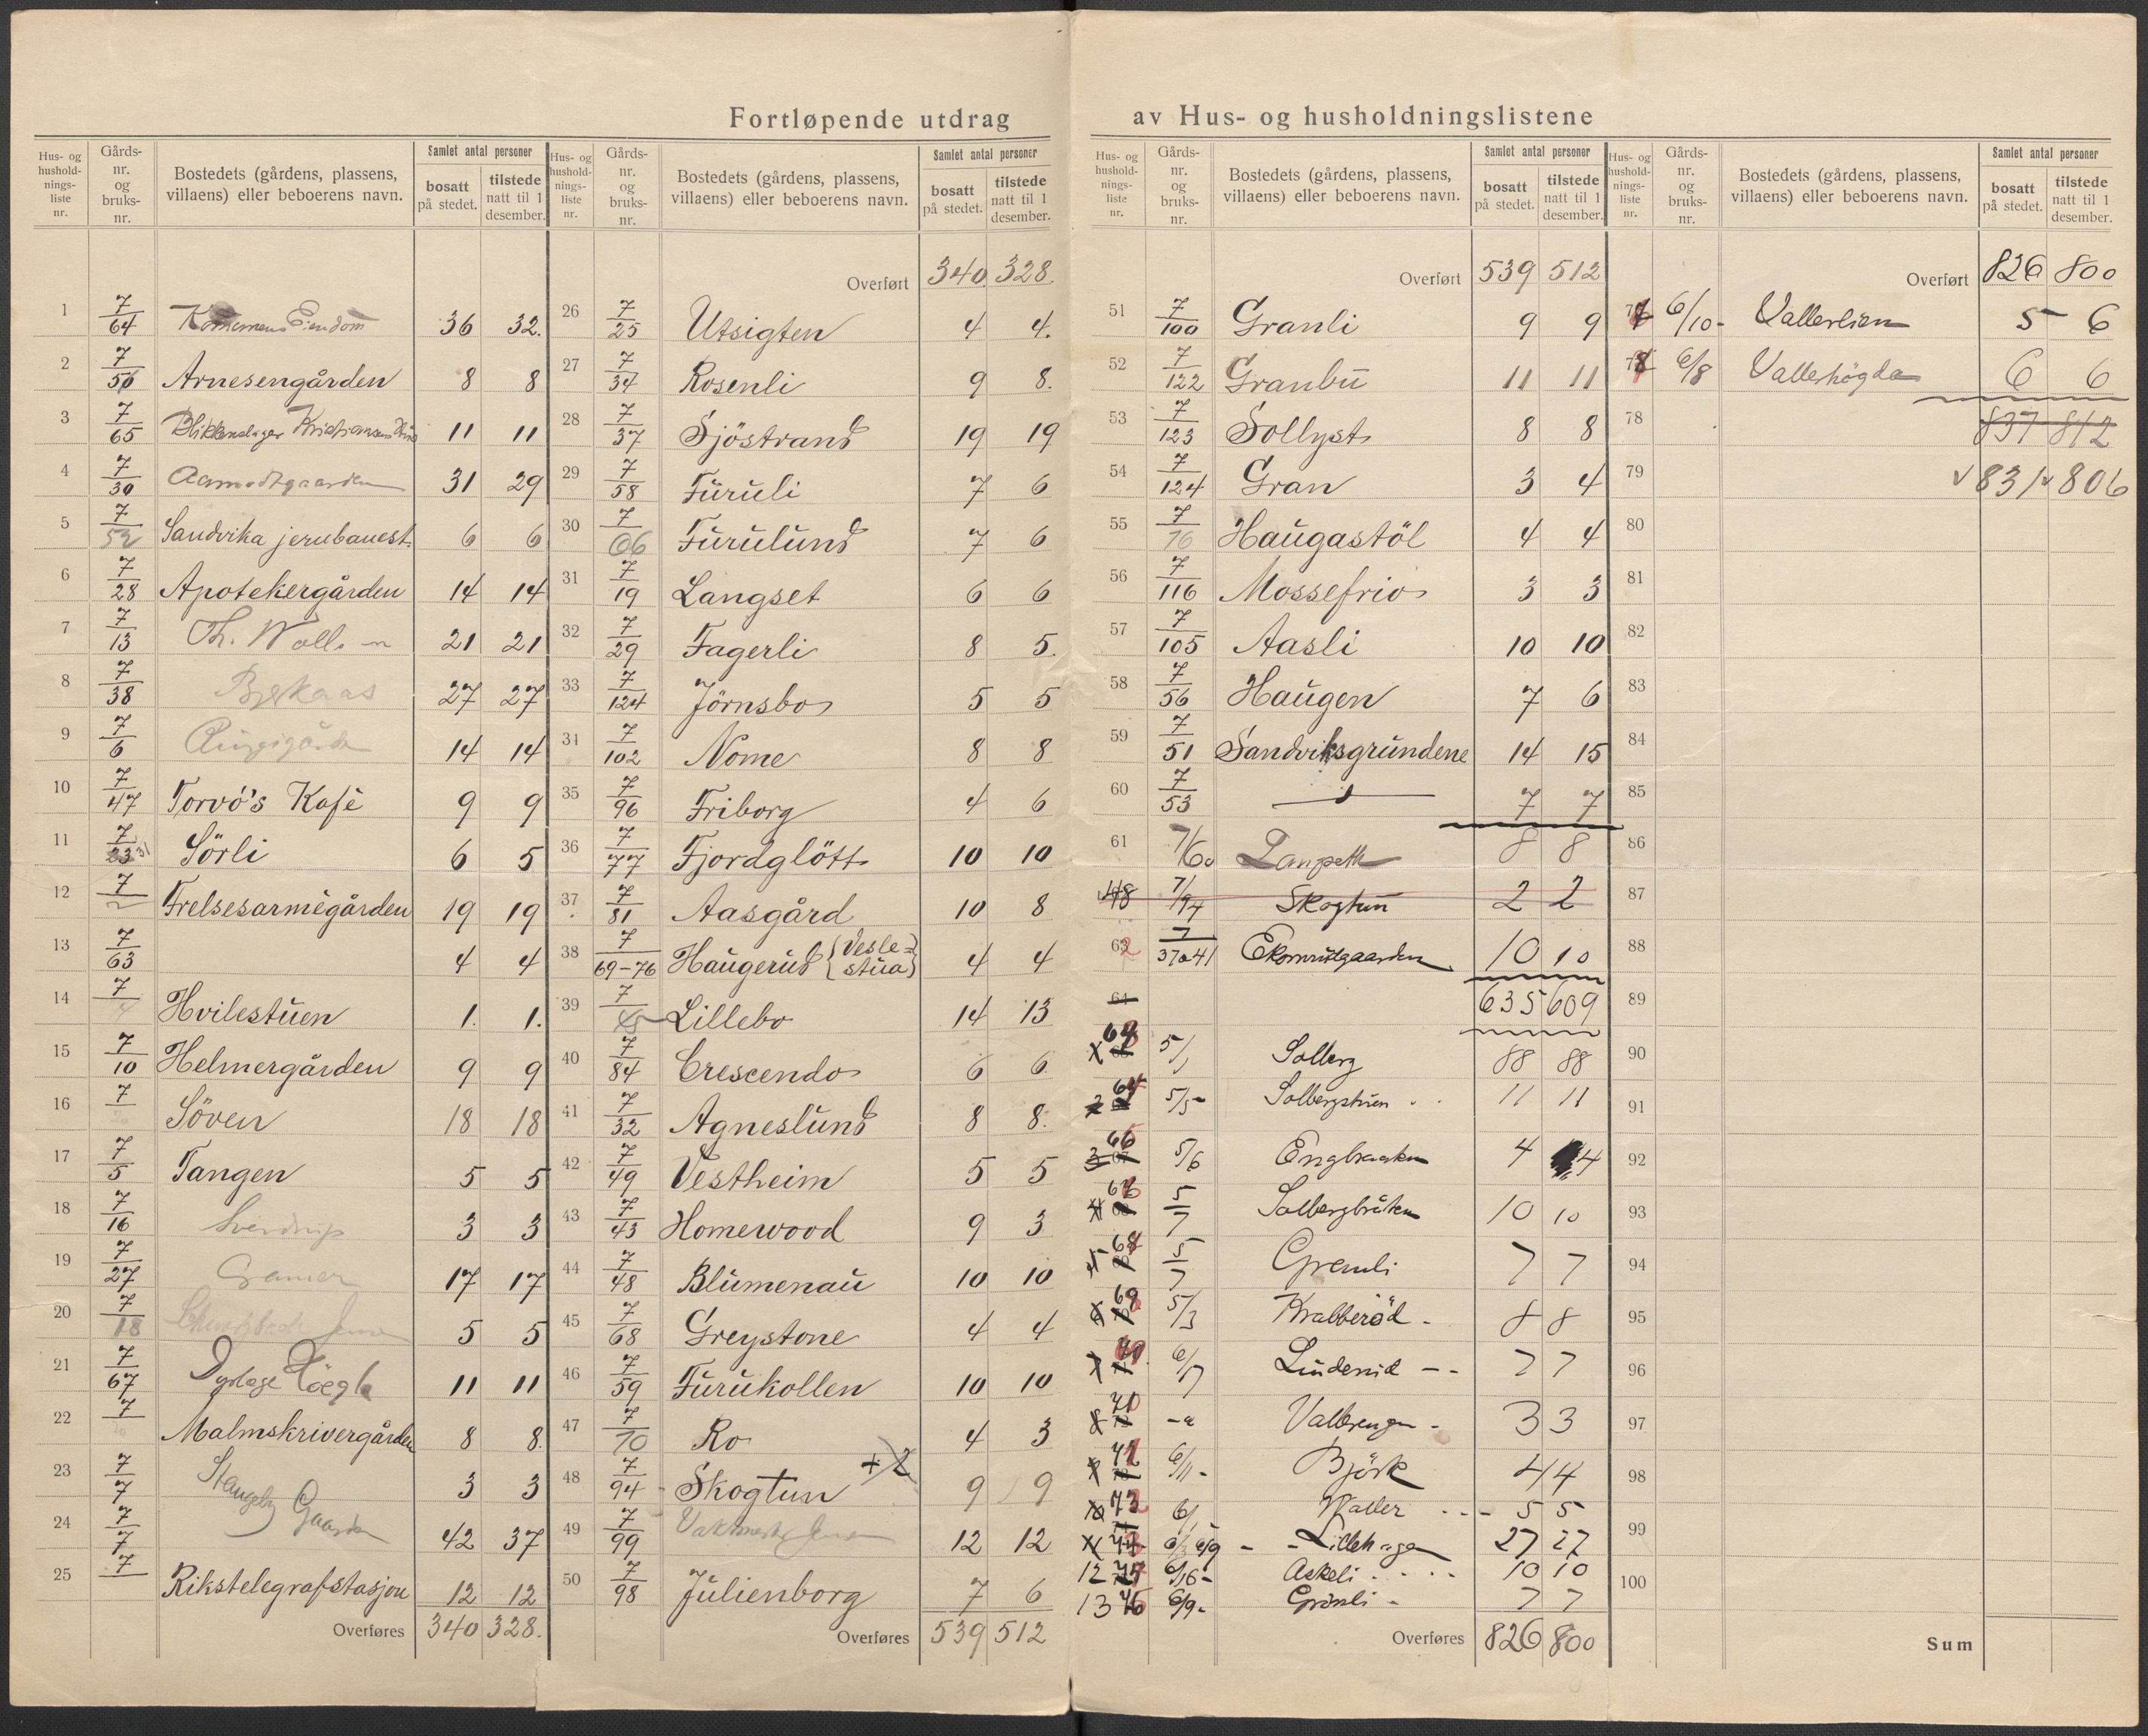 Fortløpende utdrag av Hus- og husholdningslistene
Hus- og husholdnings-liste nr. Gårds-nr. og bruks-nr. Bostedets (gårdens, plassens, villaens) eller beboerens navn. Samlet antal personer bosatt på stedet. tilstede natt til 1 desember.
1 7/64 Eiendom 36 32.
2 7/56 Arnesengården 8 8
3 7/65 Blikkenslager Kristiansens 11 11
4 7/30 Aamodtgaarden 31 29
5 7/52 Sandvika jernbanest. 6 6
6 7/28 Apotekergården 14 14
7 7/13 Th. 21 21
8 7/38 27 27
9 7/6 14 14
10 7/47 Torvö's Kafè 9 9
11 7/23 31 Sörli 6 5
12 7/ Frelsesarmégården 19 19
13 7/63 4 4
14 7/ Hvilestuen 1. 1.
15 7/10 Helmergården 9 9
16 7/ Söven 18 18
17 7/5 Tangen 5 5
18 7/16 Sverdrup 3 3
19 7/27 17 17
20 7/18 5 5
21 7/67 Dyrlæge 11 11
22 7/ Malmskrivergården 8 8.
23 7/7 Stangeby Gaarden 3 3
24 7/7 42 37
25 7/ Rikstelegrafstasjon 12 12
Overføres 340 328.
Hus- og husholdnings-liste nr. Gårds-nr. og bruks-nr. Bostedets (gårdens, plassens, villaens) eller beboerens navn. Samlet antal personer bosatt på stedet. tilstede natt til 1 desember.
Overført 340 328.
26 7/25 Utsigten 4 4.
27 7/34 Rosenli 9 8.
28 7/37 Sjöstrand 19 19
29 7/58 Furuli 7 6
30 7/66 Furulund 7 6
31 7/19 Langset 6 6
32 7/29 Fagerli 8 5.
33 7/124 Jörnsbo 5 5
34 7/102 Nome 8 8
35 7/96 Friborg 4 6
36 7/77 Fjordglött 10 10
37 7/81 Aasgård 10 8
38 7/69-76 Haugerud {Vesle=stua} 4 4
39 7/45 Lillebo 14 13
40 7/84 Crescendo 6 6
41 7/32 Agneslund 8 8.
42 7/49 Vestheim 5 5
43 7/43 Homewood 9 3
44 7/48 Blumenau 10 10
45 7/68 Greystone 4 4
46 7/59 Furukollen 10 10
47 7/70 Ro 4 3
48 7/94 Skogtun +2 9 9
49 7/99 12 12
50 7/98 Julienborg 7 6
Overføres 539 512
Hus- og husholdnings-liste nr. Gårds-nr. og bruks-nr. Bostedets (gårdens, plassens, villaens) eller beboerens navn. Samlet antal personer bosatt på stedet. tilstede natt til 1 desember.
Overført 539 512
51 7/100 Granli 9 9
52 7/122 Granbu 11 11
53 7/123 Sollyst 8 8
54 7/124 Gran 3 4
55 7/16 Haugastöl 4 4
56 7/116 Mossefrio 3 3
57 7/105 Aasli 10 10
58 7/56 Haugen 7 6
59 7/51 Sandviksgrundene 14 15
60 7/53 7 7
61 7/60 8 8
48 7/94 Skogtun 2 2
62 7/37a41 10 10
64 635 609
5/1 Solberg 88 88
5/5 Solbergstuen 11 11
5/6 Engbraaten 4 4
5/7 Solbergbråten 10 10
68 5/7 Grenli 7 7
69 5/3 Kralberöd 8 8
6/17 Linderud 7 7
Vallerengen 3 3
6/11 Björk 4 4
73 6/1 Waller 5 5
6/9 Lillehagen 27 27
12 6/16 Askeli 10 10
13 76 6/9 Grönli 7 7
Overføres 826 800
Hus- og husholdnings-liste nr. Gårds-nr. og bruks-nr. Bostedets (gårdens, plassens, villaens) eller beboerens navn. Samlet antal personer bosatt på stedet. tilstede natt til 1 desember.
Overført 826 800
6/10 Vallerlien 5 6
6/8 Vallerhögda 6 6
78 837 812
79 831 806
80
81
82
83
84
85
86
87
88
89
90
91
92
93
94
95
96
97
98
99
100
Sum